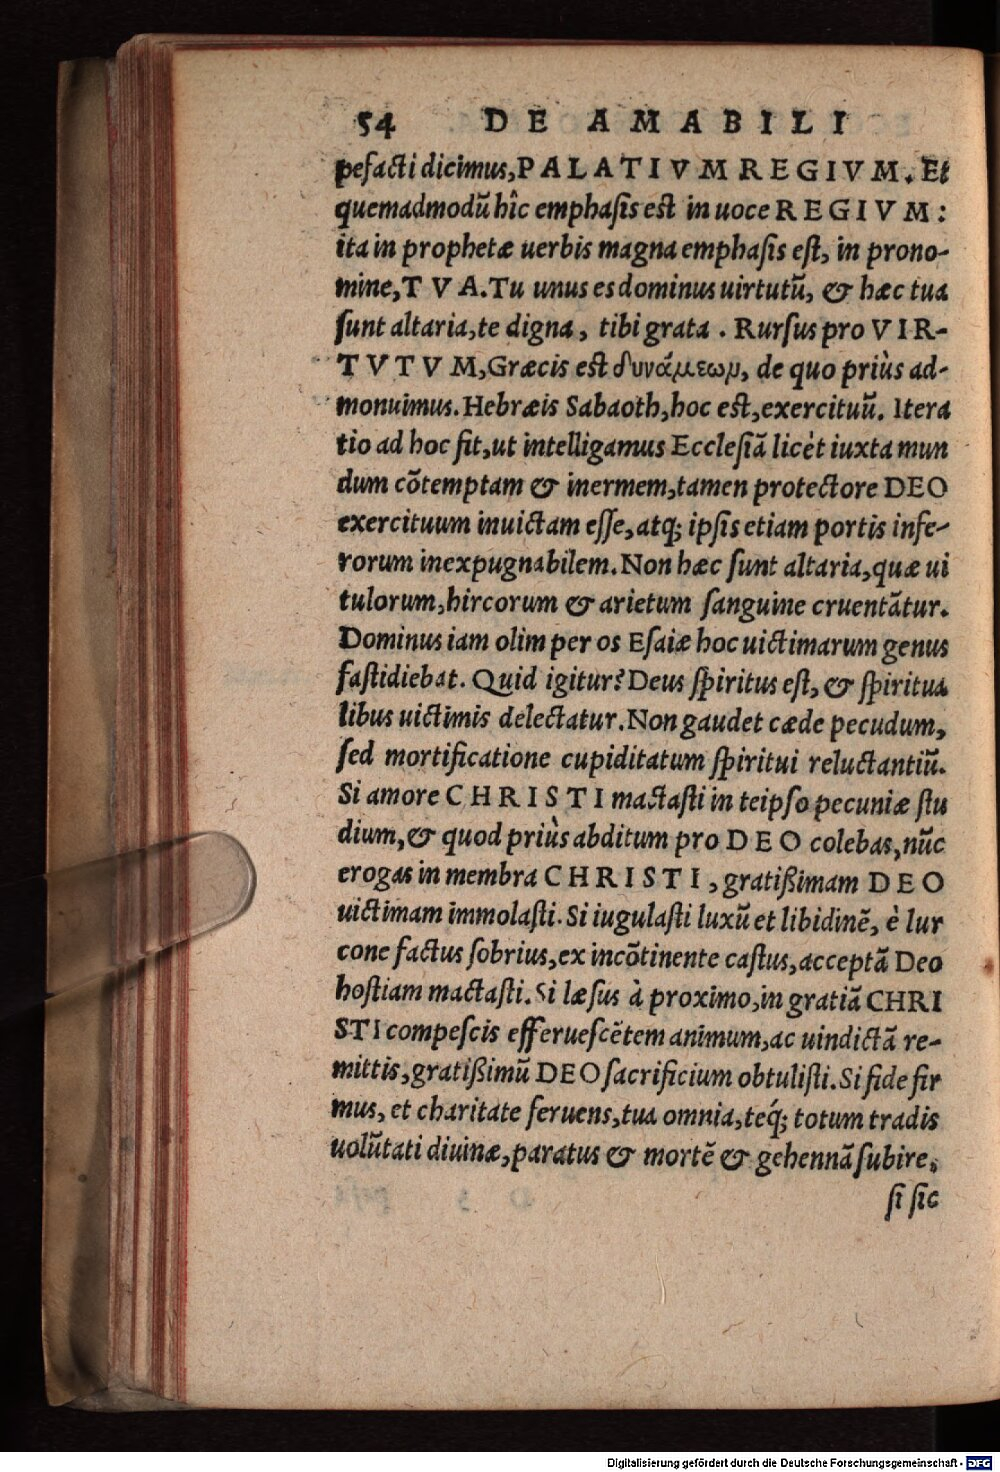 54 DE AMABILI
pefacti dicimus, PALATIVM REGIVM. Et
quemadmodũ hîc emphasis est in uoce REGIVM:
ita in prophetæ uerbis magna emphasis est, in prono-
mine, TVA. Tu unus es dominus uirtutũ, & hæc tua
sunt altaria, te digna, tibi grata. Rursus pro VIR-
TVTVM, Græcis est δυνάμεωμ, de quo priùs ad-
monuimus. Hebræis Sabaoth, hoc est, exercituũ. Itera
tio ad hoc fit, ut intelligamus Ecclesiã licèt iuxta mun
dum cõtemptam & inermem, tamen protectore DEO
exercituum inuictam esse, atq; ipsis etiam portis infe-
rorum inexpugnabilem. Non hæc sunt altaria, quæ ui
tulorum, hircorum & arietum sanguine cruentãtur.
Dominus iam olim per os Esaiæ hoc uictimarum genus
fastidiebat. Quid igitur? Deus spiritus est, & spiritua
libus uictimis delectatur. Non gaudet cæde pecudum,
sed mortificatione cupiditatum spiritui reluctantiũ.
Si amore CHRISTI mactasti in teipso pecuniæ stu
dium, & quod priùs abditum pro DEO colebas, nũc
erogas in membra CHRISTI, gratißimam DEO
uictimam immolasti. Si iugulasti luxũ et libidinẽ, è lur
cone factus sobrius, ex incõtinente castus, acceptã Deo
hostiam mactasti. Si læsus à proximo, in gratiã CHRI
STI compescis efferuescẽtem animum, ac uindictã re-
mittis, gratißimũ DEO sacrificium obtulisti. Si fide fir
mus, et charitate feruens, tua omnia, teq́; totum tradis
uolũtati diuinæ, paratus & mortẽ & gehennã subire,
si sic
Digitalisierung gefördert durch die Deutsche Forschungsgemeinschaft - DFG